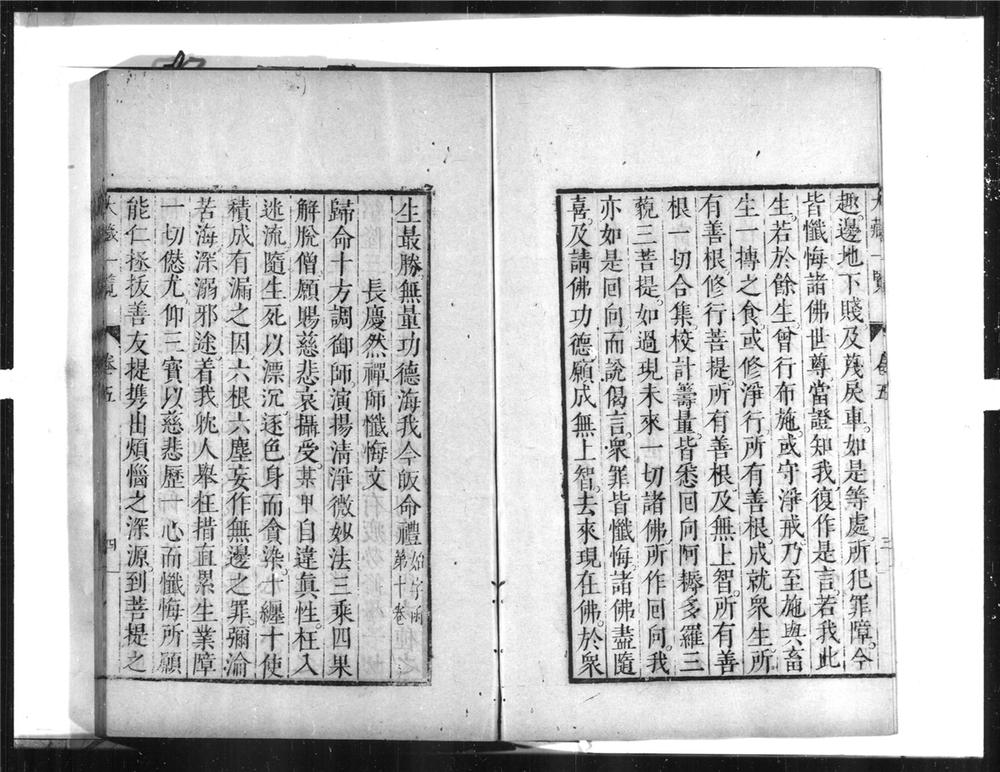 大藏一覽 卷五 三
趣。邊地下賤及蔑戾車。如是等處。所犯罪障。今
皆懺悔諸佛世尊當證知我復作是言。若我此
生。若於餘生。曾行布施。或守淨戒乃至施與畜
生一摶之食。或修淨行所有善根成就衆生所
有善根。修行菩提。所有善根及無上智。所有善
根一切合集。校計籌量。皆悉回向阿耨多羅三
藐三菩提。如過現未來一切諸佛所作回向。我
亦如是回向。而說偈言。衆罪皆懺悔。諸佛盡隨
喜。及請佛功德。願成無上智。去來現在佛。於衆
生最勝。無量功德海我今皈命禮 始字函第十卷
長慶然禪師懺悔文
歸命十方調御師。演揚淸淨微妙法三乘四果
解脫僧。願賜慈悲哀攝受。某甲自違眞性。枉入
迷流隨生死以漂沉。逐色身而貪染。十纏十使
積成有漏之因六根六塵妄作無邊之罪。彌淪
苦海深溺邪途。着我躭人舉枉措直累生業障
一切愆尤仰三寶以慈悲歷一心而懺悔所願
能仁拯拔善友提攜出煩惱之深源到菩提之
大藏一覽 卷五 四